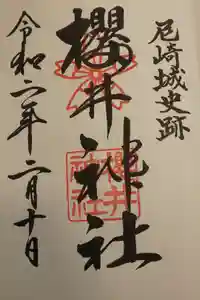 尼崎城史跡
櫻井神社
櫻井神社
令和六年二月十日